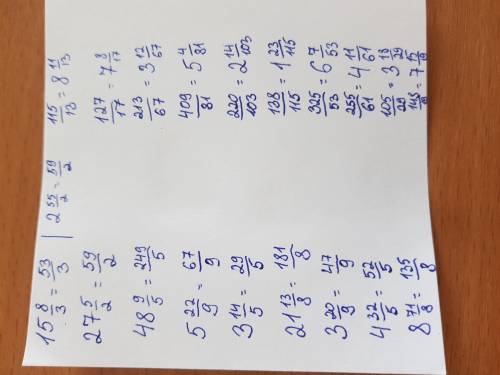 15 8/3 = 53/3 | 2 55/2 = 59/2
27 5/2 = 59/2
48 9/5 = 249/5
5 22/9 = 67/9
3 14/5 = 29/5
21 13/8 = 181/8
3 20/9 = 47/9
4 32/5 = 52/5
8 71/8 = 135/8
115/13 = 8 11/13
127/17 = 7 8/17
213/67 = 3 12/67
409/81 = 5 4/81
220/103 = 2 14/103
138/115 = 1 23/115
325/53 = 6 7/53
255/61 = 4 11/61
105/29 = 3 18/29
148/19 = 7 15/19